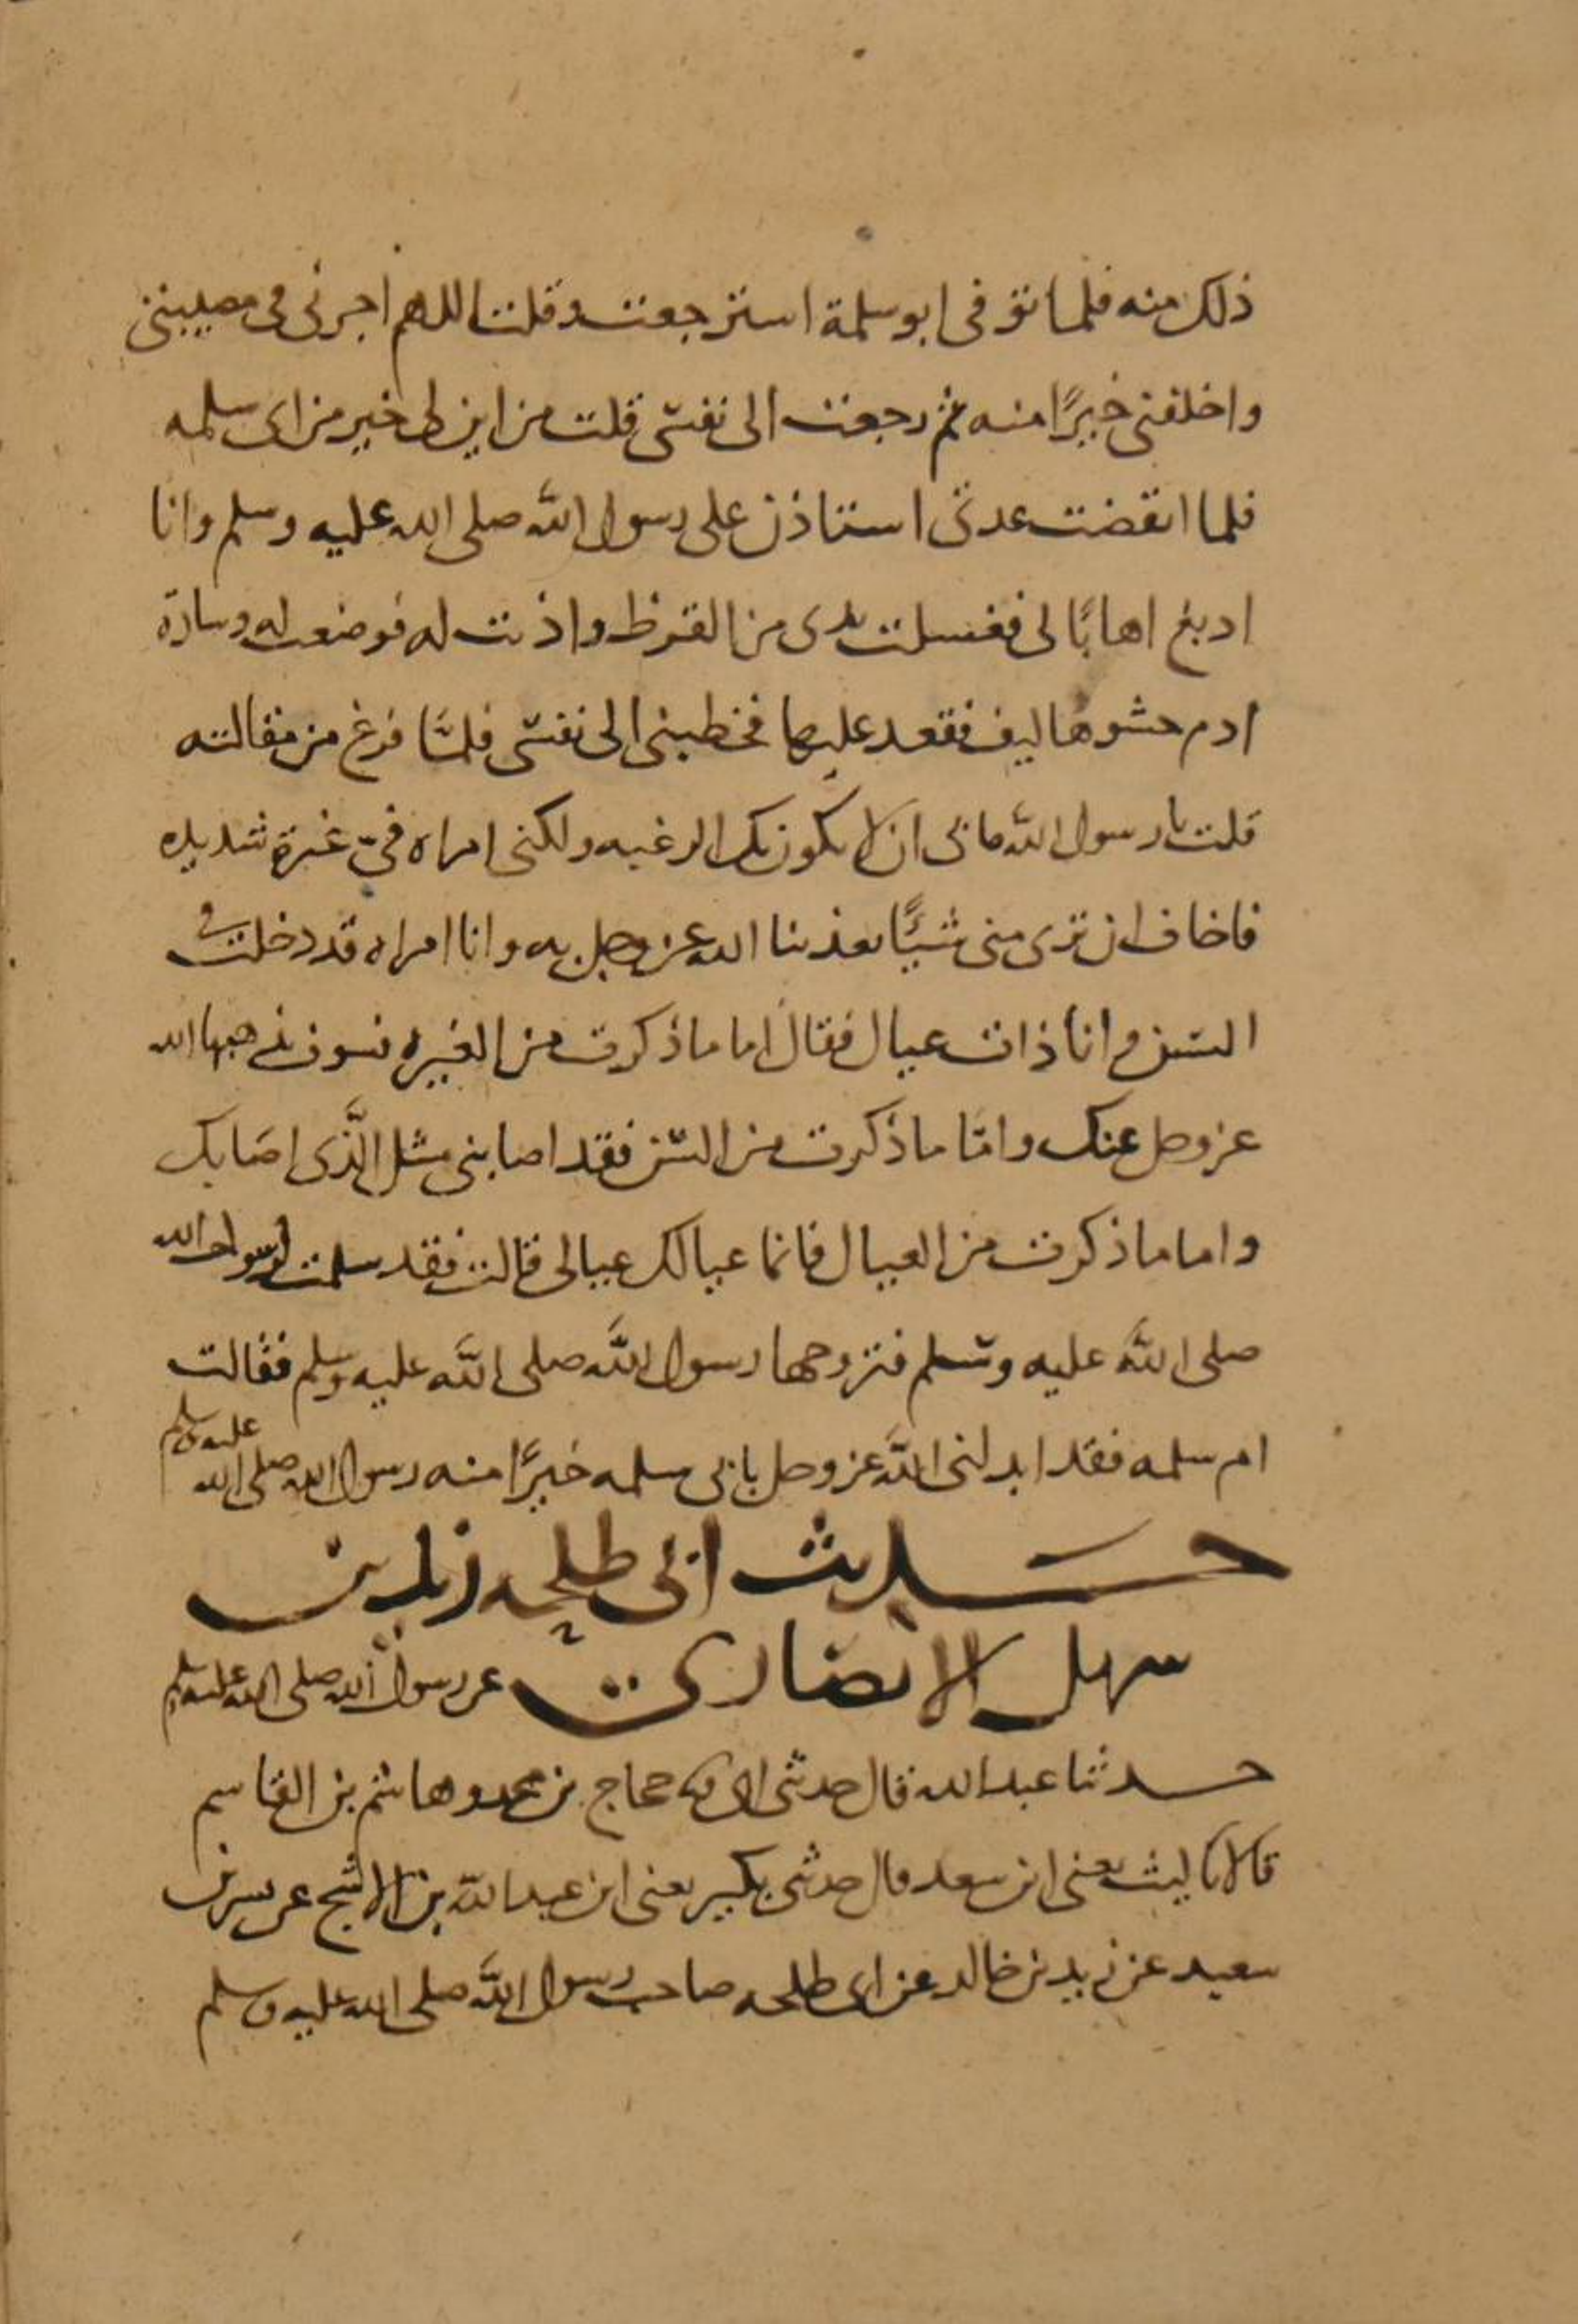 ذلك منه فلما توفى ابو سلمة استرجعت وقلت اللهم اجرنى فى مصيبتى
واخلفنى خيرًا منه ثم رجعت الى نفسى قلت من اين لى خير من ابى سلمه
فلما انقضت عدتى استاذن على رسول الله صلى الله عليه وسلم وانا
ادبغ اهابًا لى فغسلت يدى من القرظ واذنت له فوضعت له وسادة
ادم حشوها ليف فقعد عليها فخطبنى الى نفسى فلمَّا فرغ من مقالته
قلت يا رسول الله مابى ان لا يكون بك الرغبه ولكنى امراه فىّ غيرة شديده
فاخاف ان ترى منى شيئًا يعذبنا الله عز وجل به وانا امراه قد دخلت فى
السن وانا ذات عيال فقال اما ما ذكرت من الغيره فسوف يذهبها الله
عز وجل عنك وامّا ما ذكرت من السّن فقد اصابنى مثل الَّذى اصَابك
واما ما ذكرت من العيال فانما عيالك عيالى قالت فقد سلمت لرسول الله
صلى الله عليه وسلم فتزوجها رسول الله صلى الله عليه وسلم فقالت
ام سلمه فقد ابدلنى الله عز وجل بابى سلمه خيرًا منه رسول الله صلى الله عليه وسلم
حديث ابى طلحه زيد بن
سهل الانصارى عن رسول الله صلى الله عليه وسلم
حدثنا عبد الله قال حدثنى ابى ثنا حجاج بن محمد وهاشم بن القاسم
قالا ثنا ليث يعنى ابن سعد قال حدثنى بكير يعنى ابن عبد الله بن الاشج عن بسر بن
سعيد عن زيد بن خالد عن ابى طلحه صاحب رسول الله صلى الله عليه وسلم